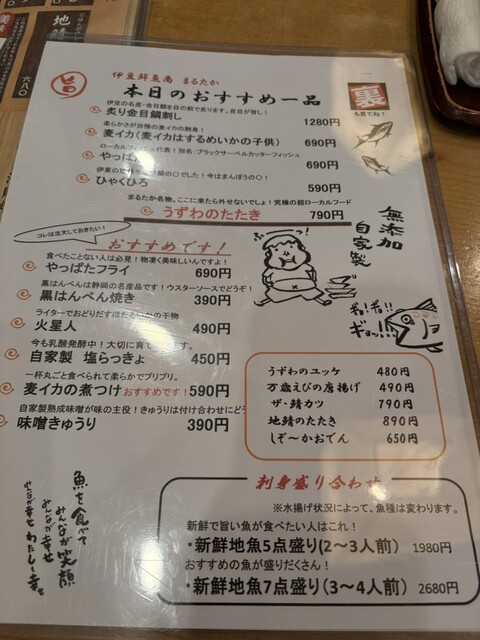 伊豆鮮魚商 まるたか
本日のおすすめ一品
旨
裏
も見てね！
伊豆の名産・金目鯛を目の前で炙ります。金目が旨し！
炙り金目鯛刺し 1280円
柔らかさが自慢の麦イカの刺身！
麦イカ（麦イカはするめいかの子供） 690円
ローカルフィッシュ代表！別名：ブラックサーベルカッターフィッシュ
やっぱた 690円
ひゃくひろ 590円
まるたか名物。ここに来たら外せないでしょ！究極の超ローカルフード
うずわのたたき 790円
無添加
自家製
コレは注文しておきたい！
おすすめです！
食べたことない人は必見！物凄く美味しいんですよ！
やっぱたフライ 690円
黒はんぺんは静岡の名産品です！ウスターソースでどうぞ！
黒はんぺん焼き 390円
ライターでおどりだすほたるいかの干物
火星人 490円
今も乳酸発酵中！大切に育て
自家製 塩らっきょ 450円
一杯丸ごと食べられて柔らかでプリプリ。
麦イカの煮つけ おすすめです！ 590円
自家製熟成味噌が味の主役！きゅうりは付け合わせにど
味噌きゅうり 390円
ギョ！ギョ！
ギョッ！！
うずわのユッケ 480円
万歳えびの唐揚げ 490円
ザ・鯖カツ 790円
地鯖のたたき 890円
しぞ～かおでん 650円
魚を食べて
みんなが笑顔
みんなが幸せ
みんなが幸せ わたしも幸せ
刺身盛り合わせ
※水揚げ状況によって、魚種は変わります。
新鮮で旨い魚が食べたい人はこれ！
・新鮮地魚5点盛り(2～3人前) 1980円
おすすめの魚が盛りだくさん！
・新鮮地魚7点盛り(3～4人前) 2680円